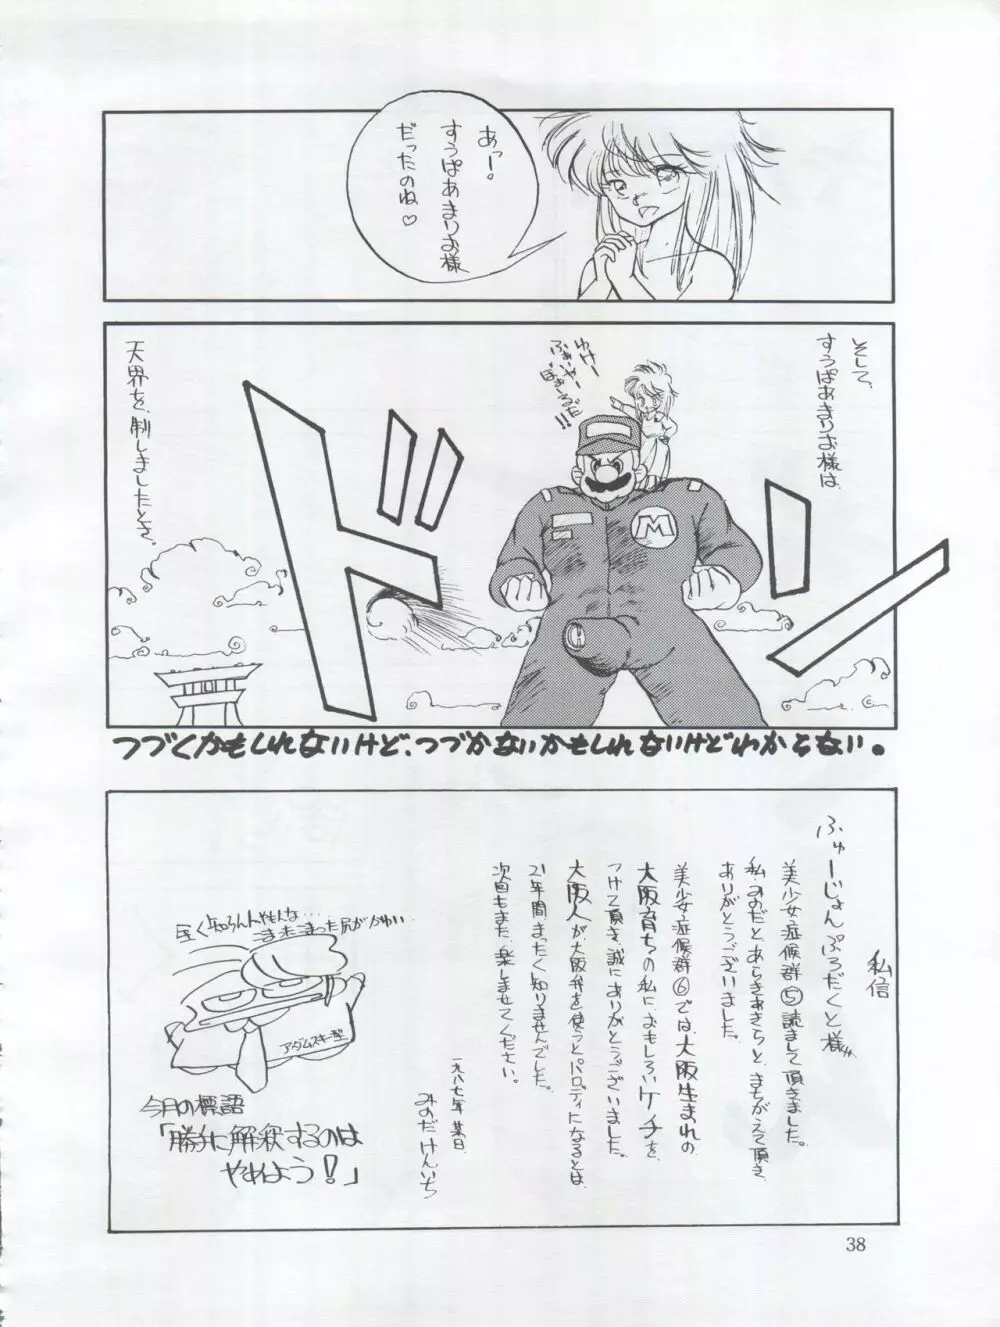 あっー。
すうぱあまりお様
だったのね♡
そして、
すうぱあまりお様は
ゆけー
ふぁいやー
ぼぉーるだ!!!
M
ドーン
天界を、制しましたとさ。
つづくかもしれないけど、つづかないかもしれないけどわからない。
私信
ふゅーじょんぷろだくと様
美少女症候群⑤読まして頂きました。
私、みのだとあらきあきらと、まちがえて頂き、
ありがとうございました。
美少女症候群⑥では、大阪生まれの
大阪育ちの私に、おもしろいケチを、
つけて頂き、誠にありがとうございました。
大阪人が大阪弁を使うとパロディになるとは、
21年間まったく知りませんでした。
次回もまた、楽しませてください。
一九八七年 某日
みのだけんいち
全く知らん人やもんな…
こまったこまった尻がかゆい
アダムスキー型
今月の標語
「勝手に解釈するのは
やめよう!」
38